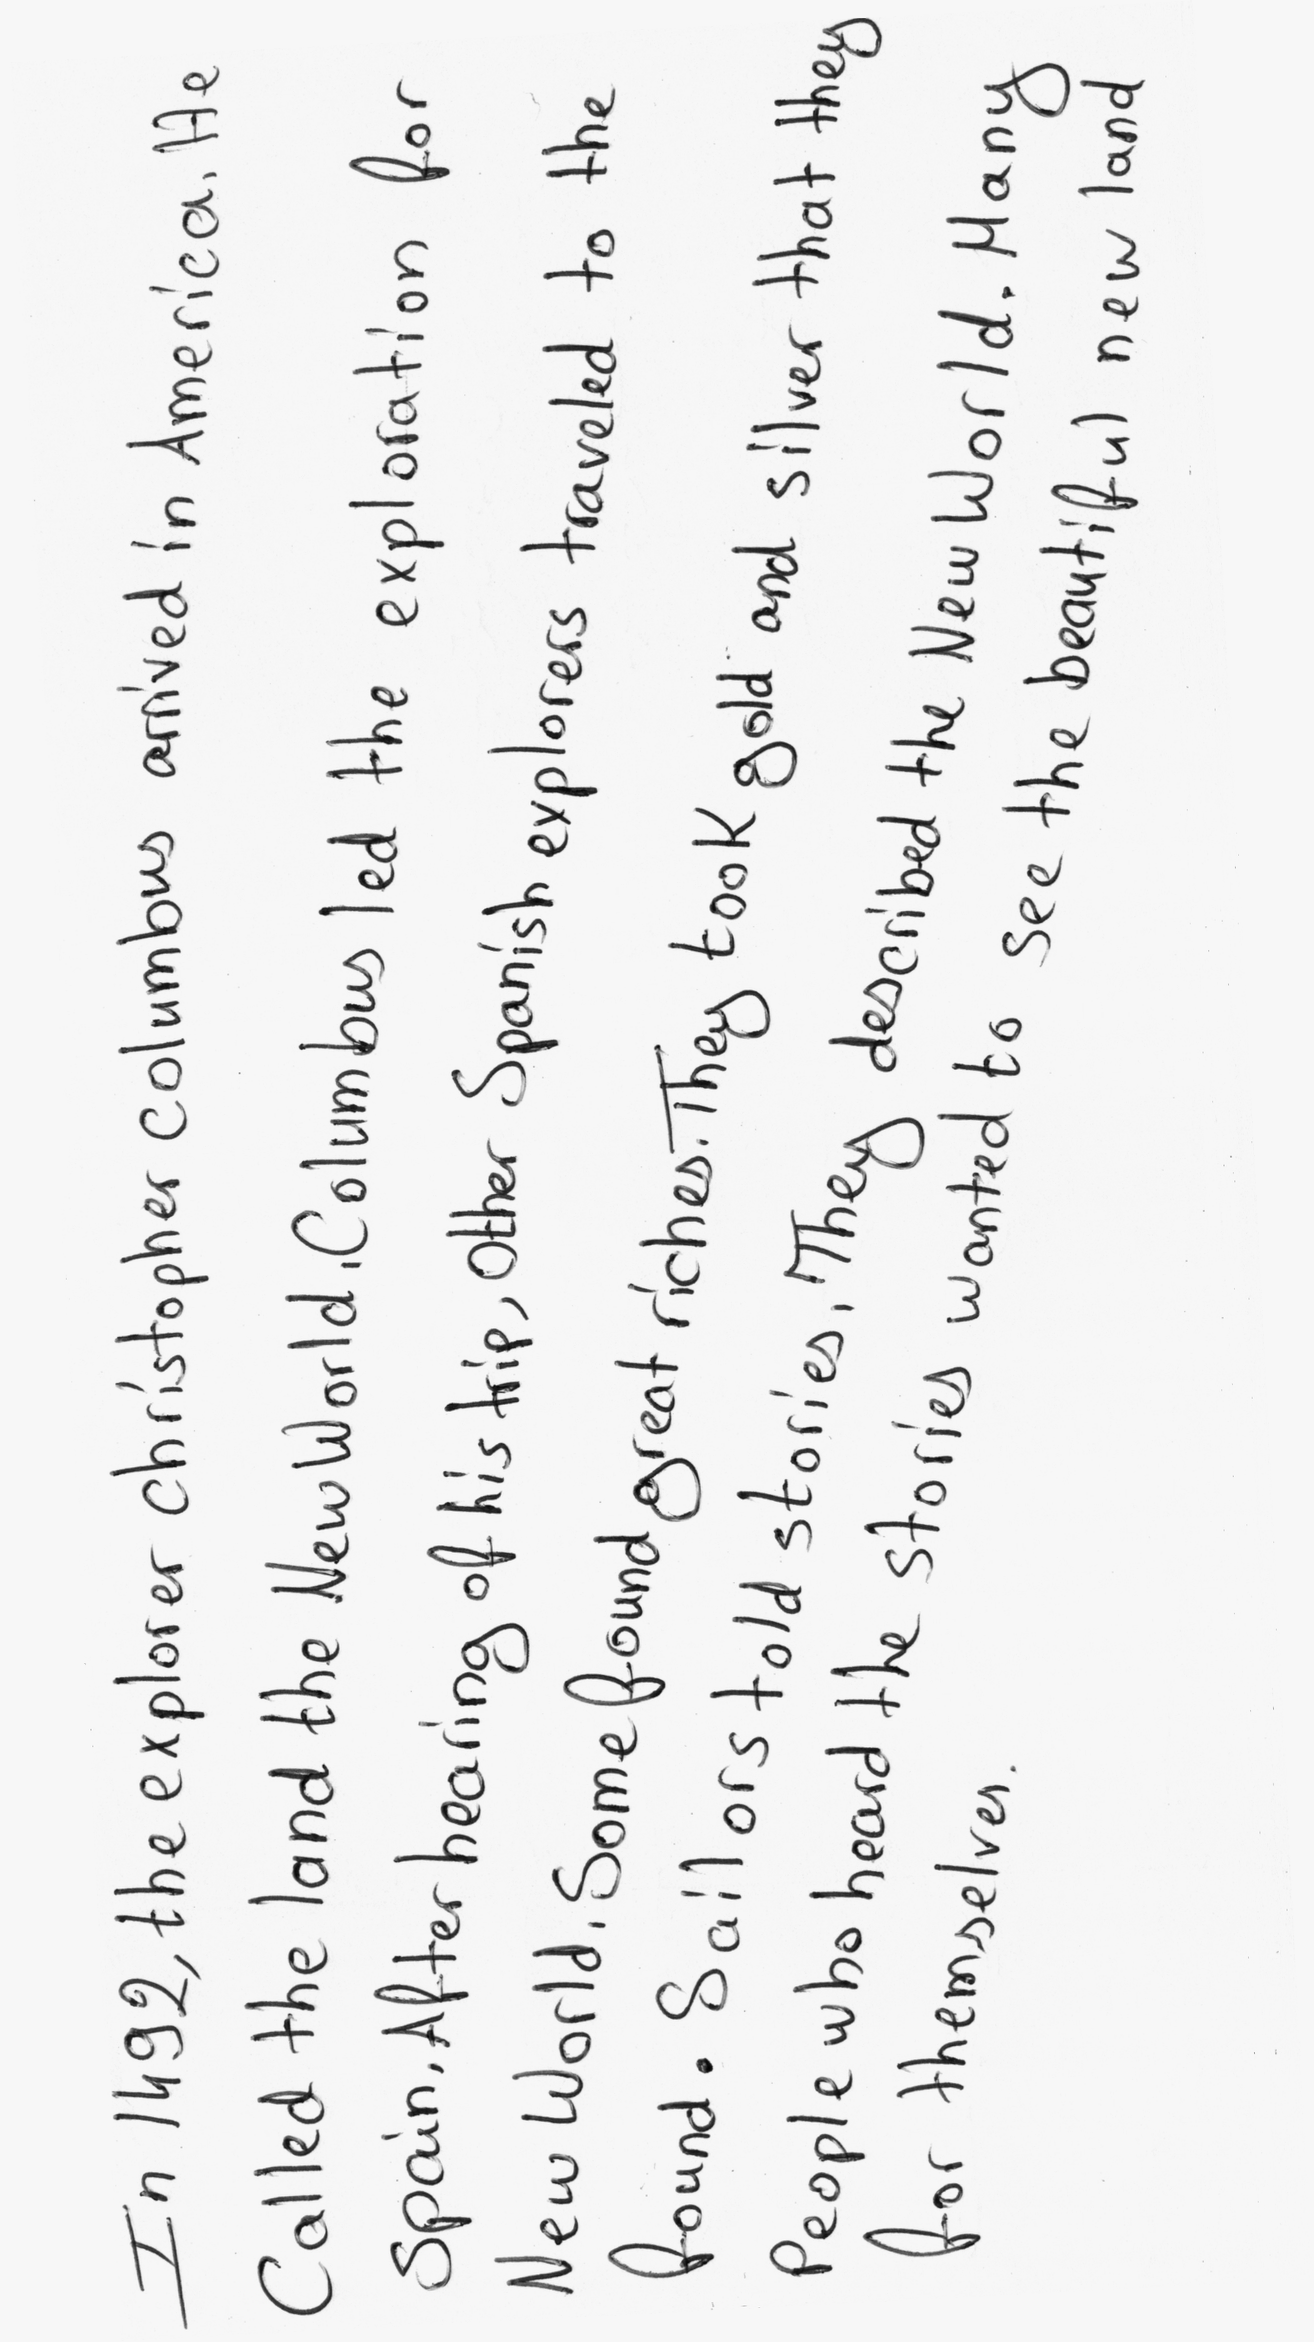 In 1492, the explorer christopher columbus arrived in America. He
Called the land the New World. Columbus led the exploration for
Spain. After hearing of his trip, other Spanish explorers traveled to the
New World. Some found great riches. They took gold and silver that they
found. Sailors told stories. They described the New World. Many
People who heard the stories wanted to see the beautiful new land
for themselves.